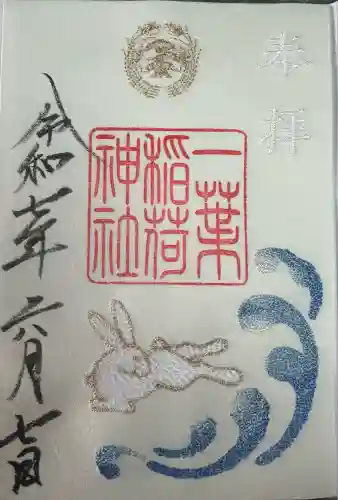 奉拝
一葉
稲荷
神社
令和七年六月七日